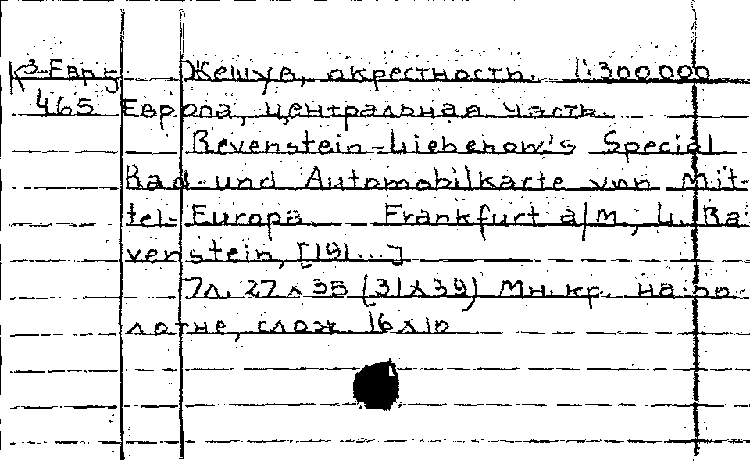 К3-Евр 5 Жешув, окрестность. 1:300 000
465 Европа, центральная часть.
Ravenstein-Liebenow's Special
Rad- und Automobilkarte von Mit-
tel-Europa. Frankfurt a/M, L. Ra-
venstein, [191...]
7л. 27 x 35 (31x39) Мн. кр. на по-
лотне, слож. 16x10